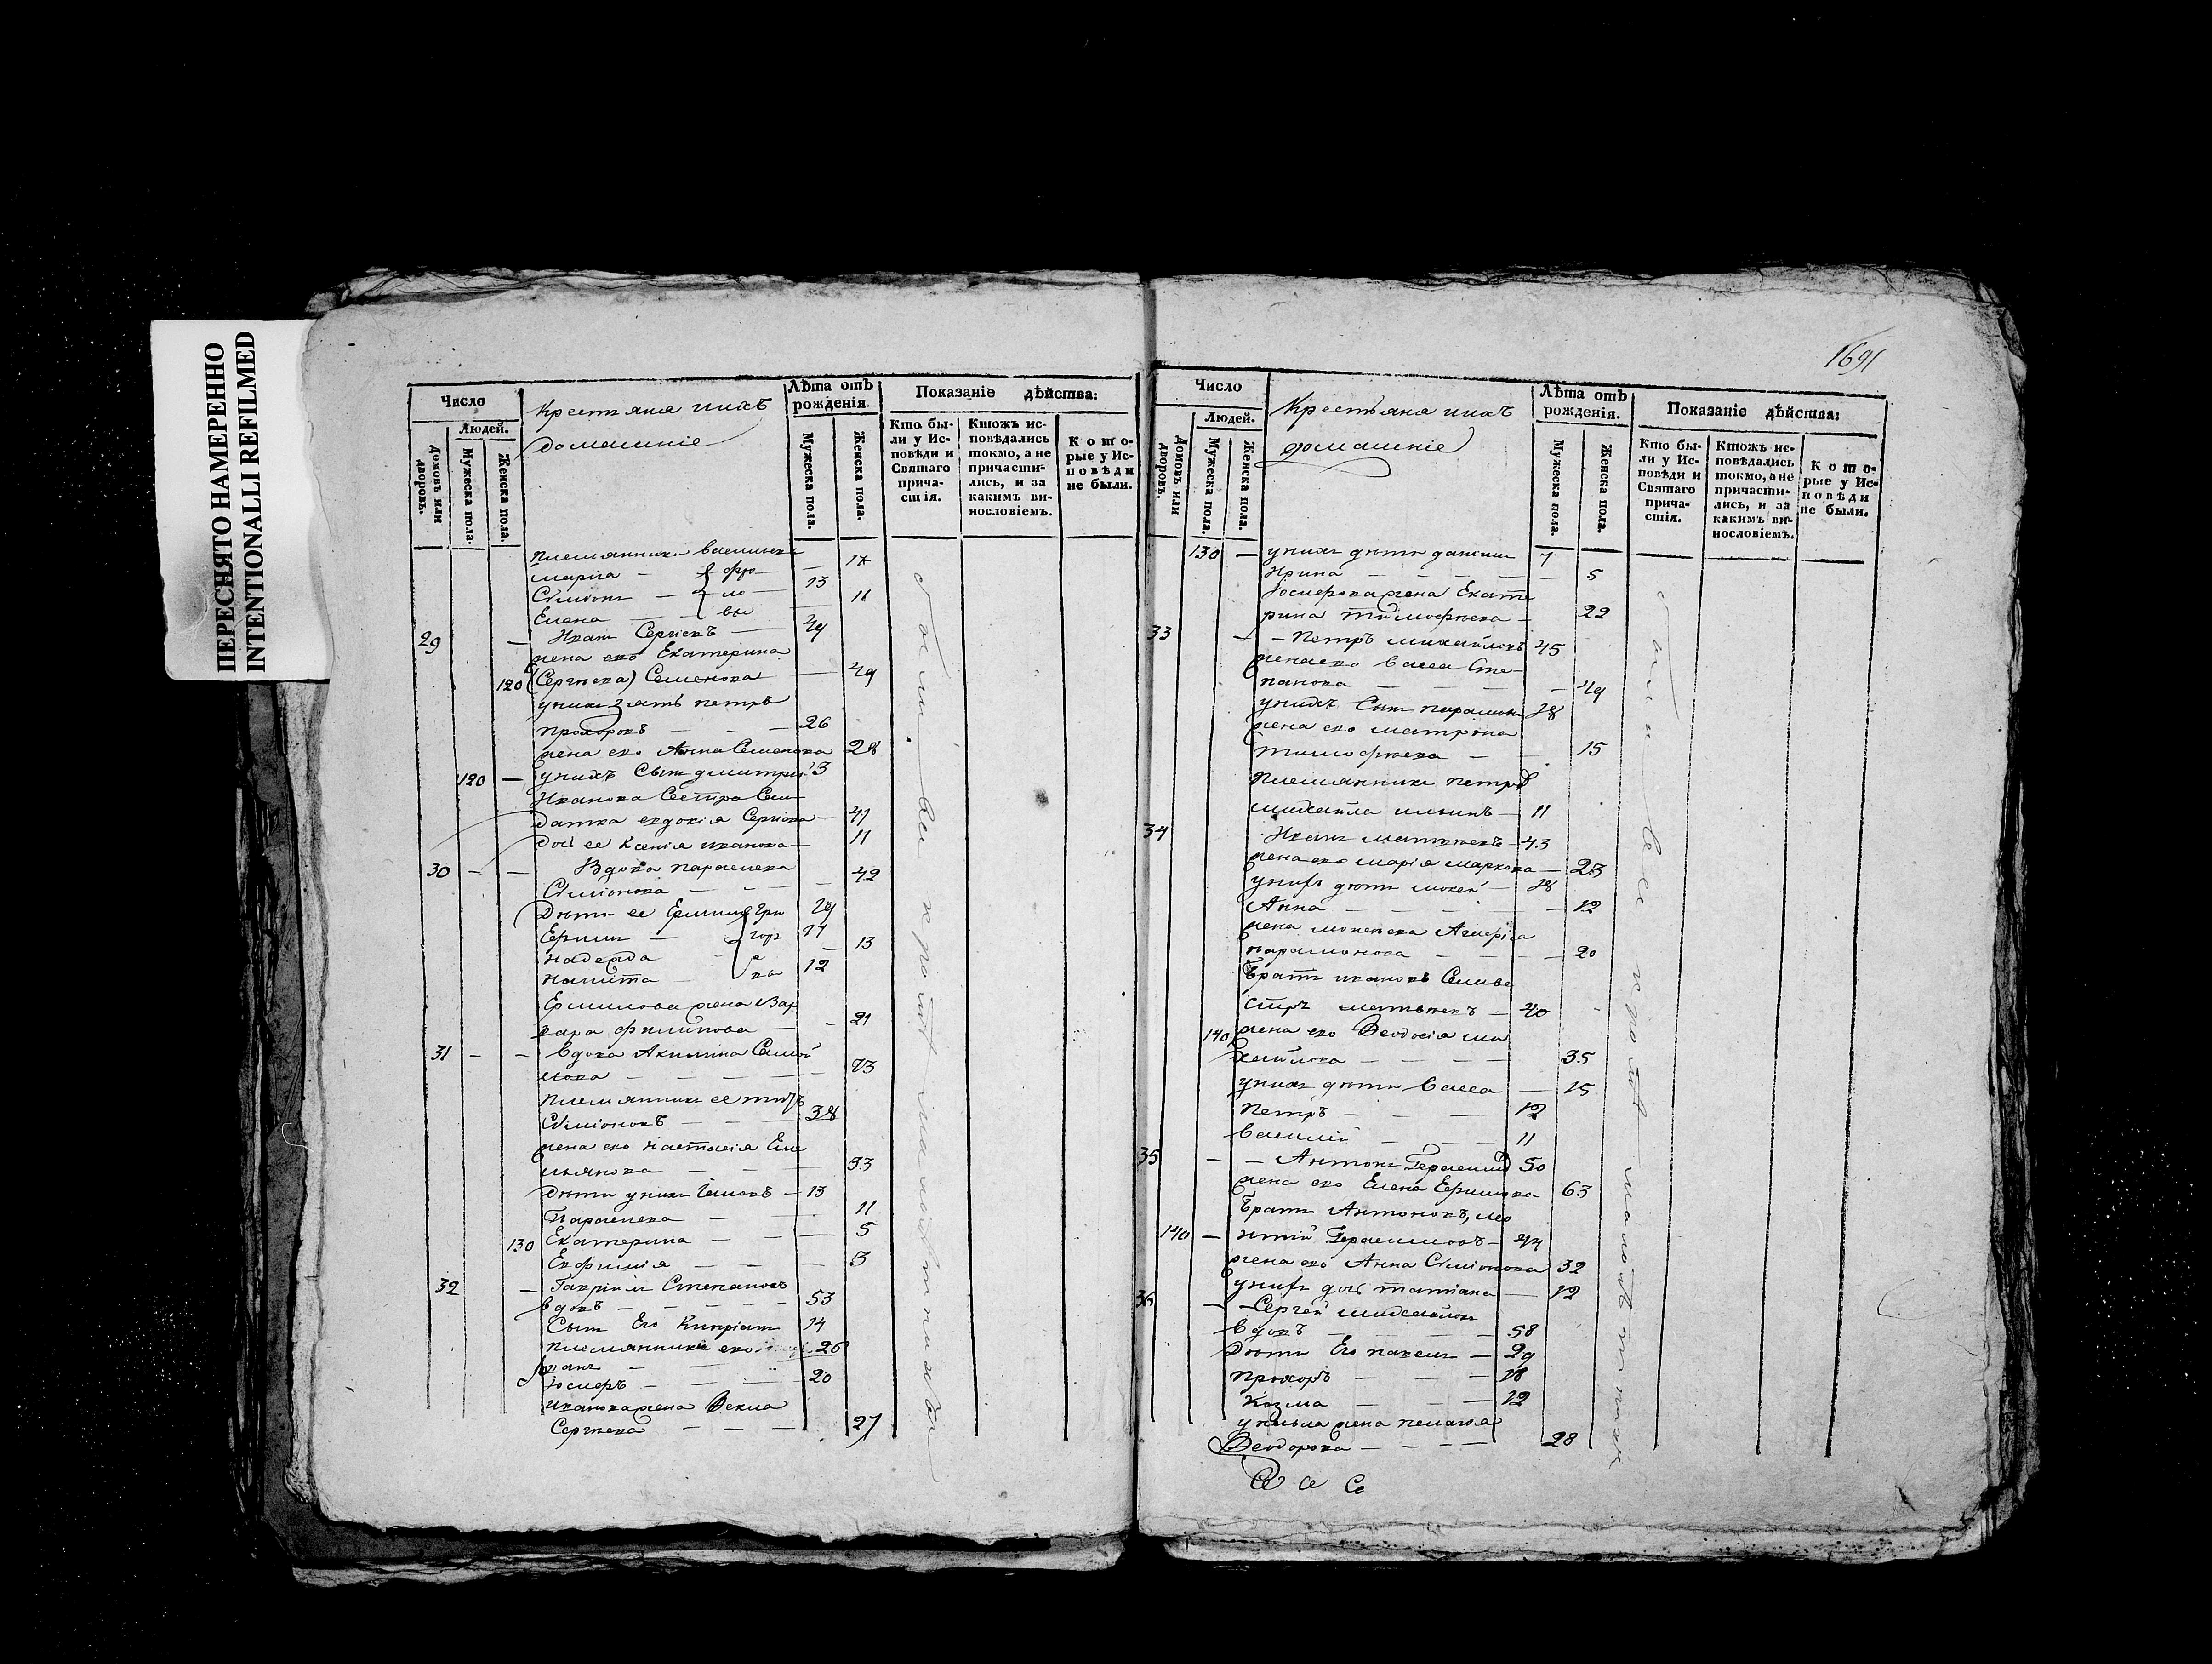 ПЕРЕСНЯТО НАМЕРЕННО
INTENTIONALLI REFILMED
Число
Людей.
Домовъ или дворовъ.
Мужеска пола.
Женска пола.
Крестьяня ихъ
домашніе
Лѣта отъ рожденія.
Мужеска пола.
Женска пола.
Показаніе дѣйства:
Кто бы-
ли у Ис-
повѣди и
Святаго
прича-
стія.
Ктожъ ис-
повѣдались
токмо, а не
причасти-
лись, и за
какимъ ви-
нословіемъ.
К о т о-
рые у Ис-
п о в ѣ д и
не были.
Марія —
Симіонъ — 13
Елена — 11
29 — Иванъ Сергіевъ —
жена его Екатерина
120 (Сергѣева) Семенова — 49
у нихъ зять петръ
прохоровъ — — — 26
жена его Анна Семенова 28
120 — у нихъ сынъ димитрій 3
Иванова Сестра Сол-
датка евдокія Сергіева — 41
дочь ее Ксенія иванова — 11
30 — — Вдова параскева
Симіонова — — — 42
Дѣти ее
Надежда 13
Никита 12
Ермилова жена Вар
вара филипова — — 21
31 — — вдова Акилина Самой
лова — — — —
племянникъ ее
Симіоновъ — — — 38
жена его настасія Еме
льянова — — — 33
дѣти у нихъ — 13
Параскева — — 11
130 Екатерина — — — 5
Евфимія — — — 3
32 — Гавріилъ Степановъ
вдовъ — — — — 53
Сынъ Его Кипріанъ 14
племянники его 26
Іосифъ — — — 20
Иванова жена Ѳекла
Сергѣева — — — 27
были. все кромѣ малолѣтныхъ
1691
Число
Людей.
Домовъ или дворовъ.
Мужеска пола.
Женска пола.
Крестьяня ихъ
домашніе
Лѣта отъ рожденія.
Мужеска пола.
Женска пола.
Показаніе дѣйства:
Кто бы-
ли у Ис-
повѣди и
Святаго
прича-
стія.
Ктожъ ис-
повѣдались
токмо, а не
причасти-
лись, и за
какимъ ви-
нословіемъ.
К о т о-
рые у Ис-
п о в ѣ д и
не были.
130 — у нихъ дѣти даніилъ 7
Ирина — — — — 5
Іосифова жена Екате
рина тимофѣева — 22
33 — — Петръ михайловъ 45
жена его васса Сте-
панова — — — — 49
у нихъ Сынъ парамонъ 18
жена его матрона
тимофѣева — — 15
племянникъ петра
михаила ильинъ — 11
34 Иванъ матвѣевъ — 43
жена его марія маркова — 23
у нихъ дѣти мокей — 18
Анна — — — — 12
жена мокеева
парамонова — — — 20
Братъ ивановъ Селиве
стръ матвѣевъ — 40
140 жена его Ѳеодосія ми
хайлова — — — — 35
у нихъ дѣти васса — 15
Петръ — — — 12
Василій — — — 11
35 — — Антонъ Герасимовъ 50
жена его Елена Ермилова 63
Братъ Антоновъ, лео
140 — нтій Герасимовъ —
жена его Анна Симіонова 32
у нихъ дочь татіана — 12
36 — — Сергей михайловъ
вдовъ — — — — 58
Дѣти Его павелъ — 29
прохоръ — — — 18
Козма — — — 12
у павла жена пелагія
Ѳеодорова — — — — 28
были все кромѣ малолѣтныхъ